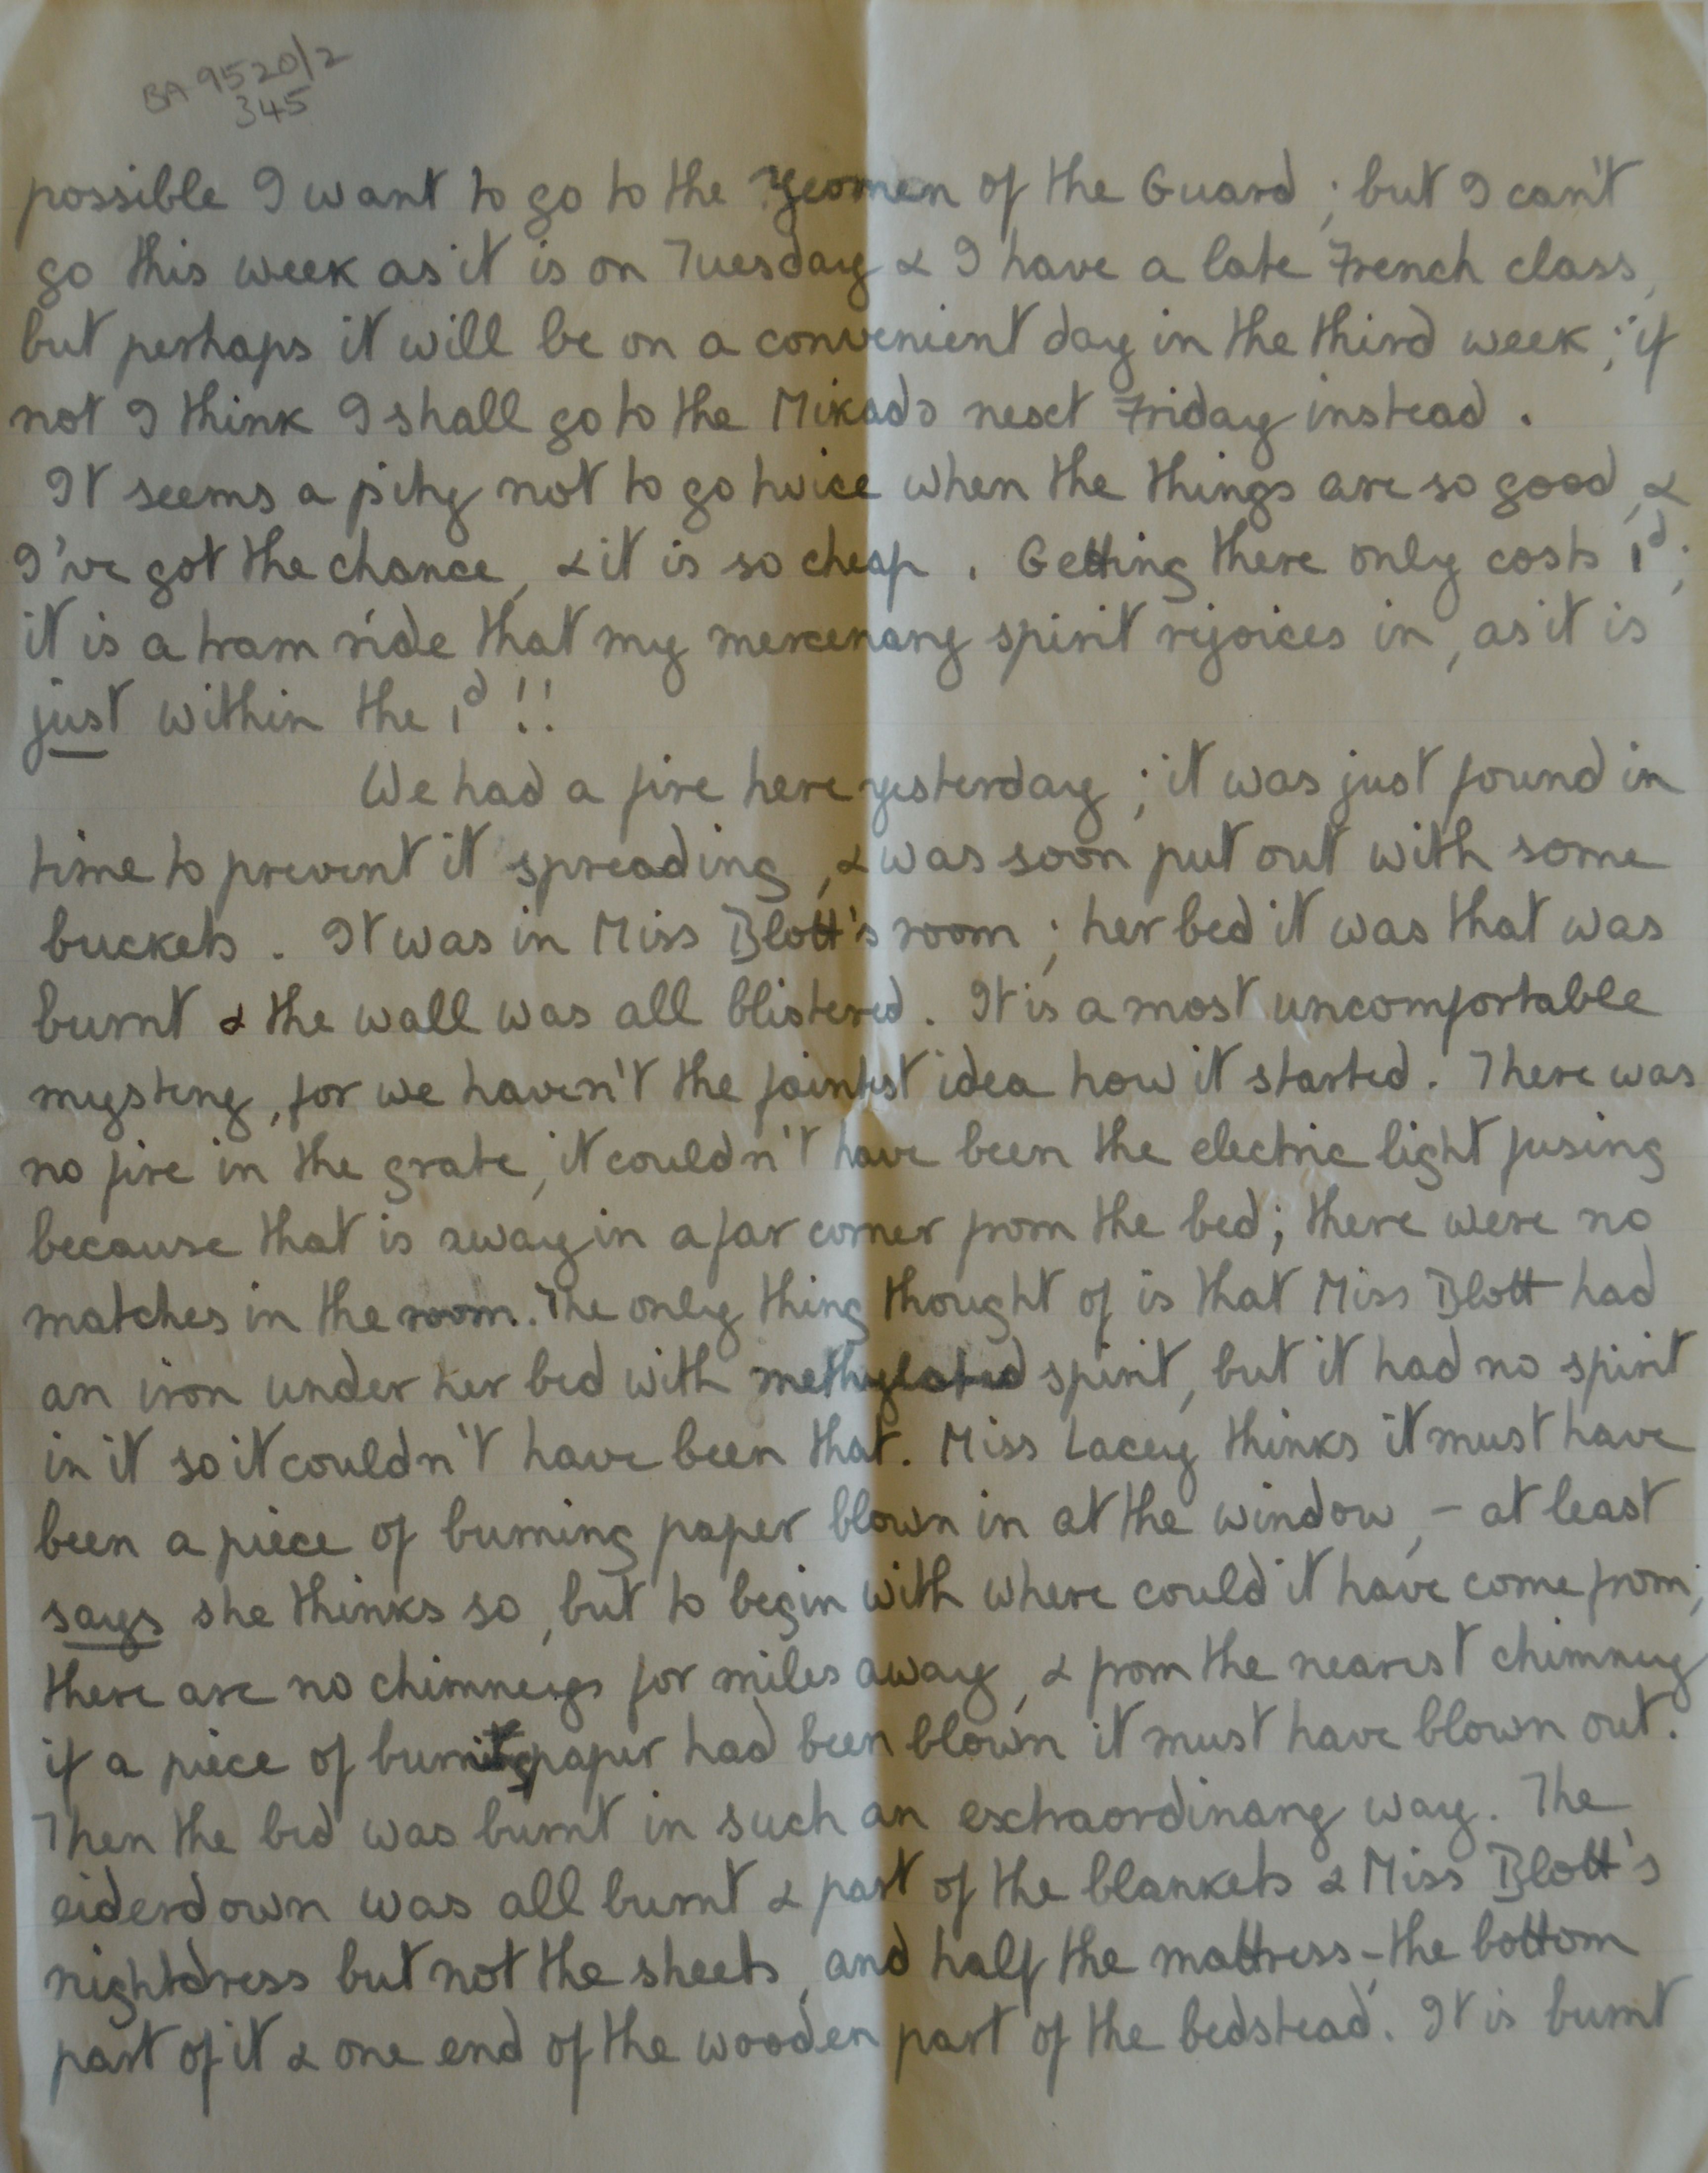 BA 9520/2
345
possible I want to go to the Yeomen of the Guard ; but I can't
go this week as it is on Tuesday & I have a late French class,
but perhaps it will be on a convenient day in the third week ; if
not I think I shall go to the Mikado next Friday instead .
It seems a pity not to go twice when the things are so good, &
I've got the chance, & it is so cheap . Getting there only costs 1d ;
it is a tram ride that my mercenary spirit rejoices in, as it is
just within the 1d !!
We had a fire here yesterday ; it was just found in
time to prevent it spreading, & was soon put out with some
buckets . It was in Miss Blott's room ; her bed it was that was
burnt & the wall was all blistered . It is a most uncomfortable
mystery, for we haven't the faintest idea how it started . There was
no fire in the grate, it couldn't have been the electric light fusing
because that is away in a far corner from the bed ; there were no
matches in the room . The only thing thought of is that Miss Blott had
an iron under her bed with methylated spirit, but it had no spirit
in it so it couldn't have been that . Miss Lacey thinks it must have
been a piece of burning paper blown in at the window, - at least
says she thinks so, but to begin with where could it have come from ;
there are no chimneys for miles away, & from the nearest chimney
if a piece of burning paper had been blown it must have blown out .
Then the bed was burnt in such an extraordinary way . The
eiderdown was all burnt & part of the blankets & Miss Blott's
nightdress but not the sheets, and half the mattress - the bottom
part of it & one end of the wooden part of the bedstead . It is burnt